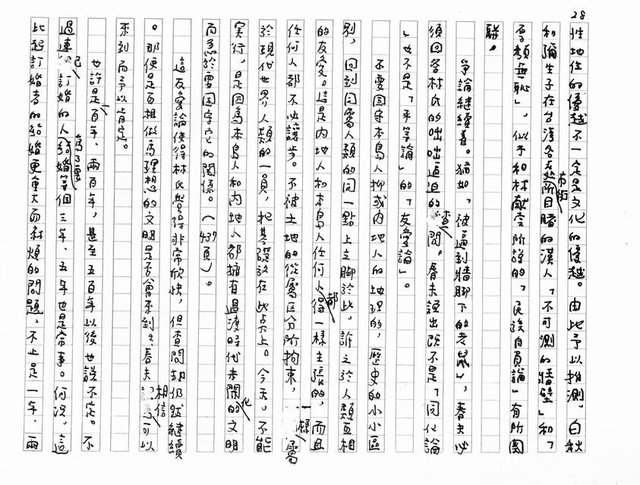 28
性地位的優越不一定是文化的優越。由此予以推測。白秋
和彌生子在台灣各市街所目睹的漢人「不可測的牆壁」和「
厚顏無恥」，似乎和林献堂所說的「民族自負論」有所關
聯。
爭論繼續着。猶如「被逼到牆腳下的老鼠」，春夫必
須回答林氏的咄咄逼迫的查問。春夫提出既不是「同化論
」也不是「平等論」的「友愛論」。
不要固執本島人抑或內地人的地理的，歷史的小小區
別，回到同屬人類的同一點上立腳於此，訴之於人類互相
的友愛。這是內地人和本島人任何人都得一樣主張的，而且
任何人都不必讓步。不被土地的從屬區分所拘束，一樣屬
於現代世界人類的一員，把基礎放在此点上。今天。不能
實行，是因為本島人和內地人都擁有過渡時代未開化的文明
而急於要固守它的關係。（437頁）。
這友愛論使得林氏覺得非常欣快，但查問却仍然繼續
。那便是百相做為理想的文明是否會來到？春夫相信可以
來到而予以肯定。
也許是百年、兩百年，甚至五百年以後也說不定。不
過連訂婚的人為了要結婚等個三年、五年也是常事。何況，這
比起訂婚者的結婚更重大而麻煩的問題，不止是一年、兩